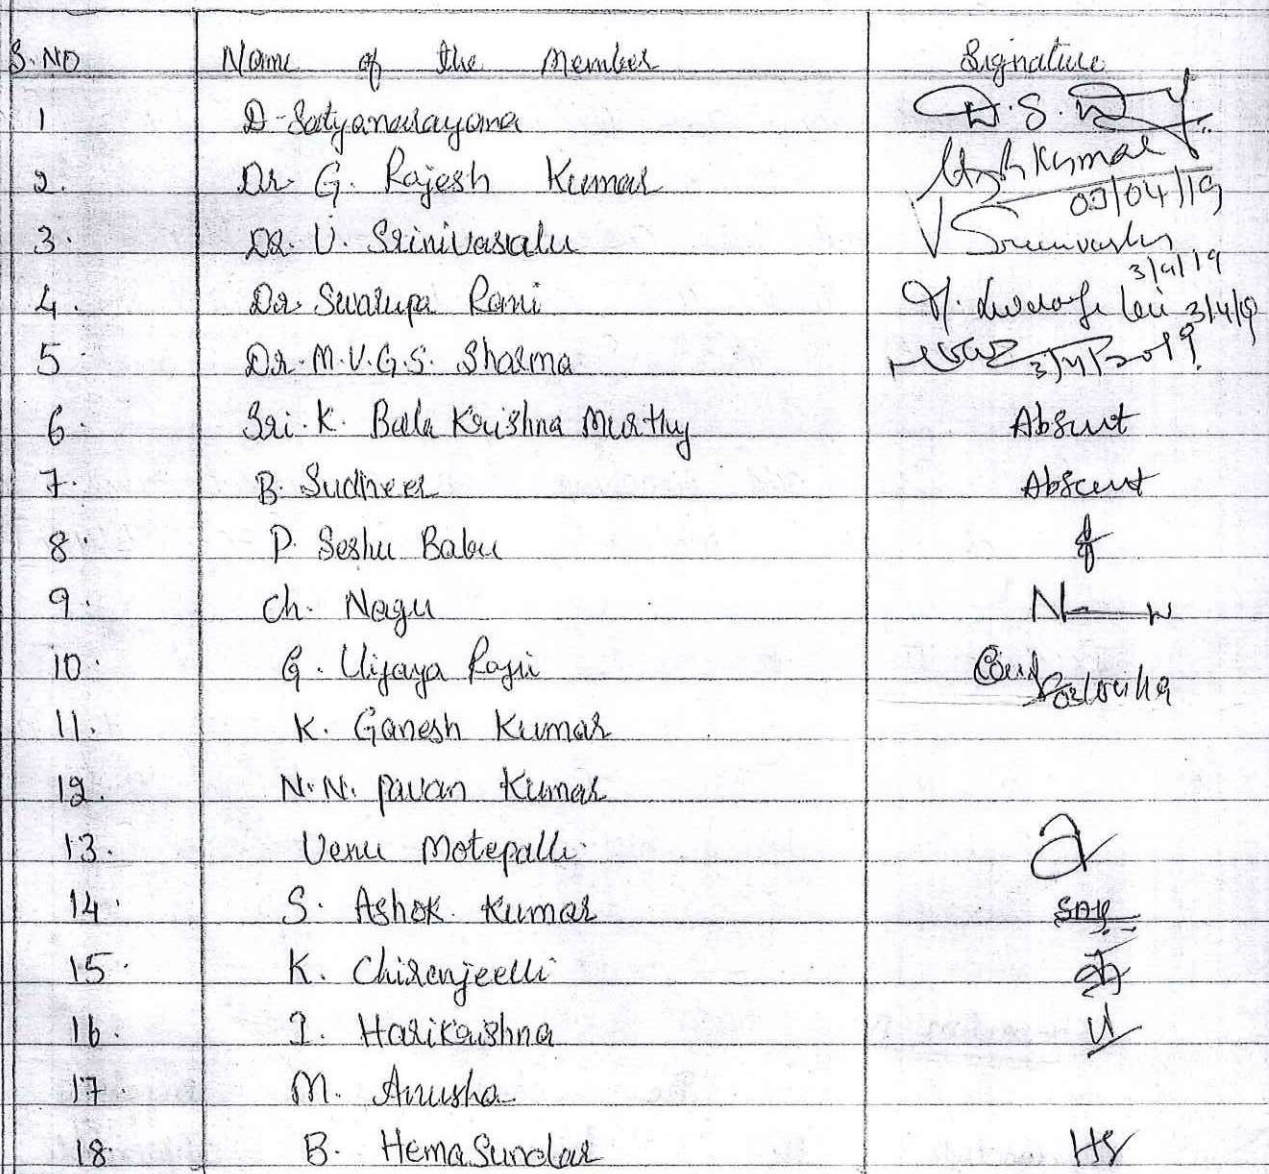 S.NO Name of the Member Signature
1 D. Satyanarayana D.S.
2. Dr G. Rajesh Kumar Kumar 03/04/19
3. Dr. V. Srinivasalu V Srinivasulu 3/4/19
4. Dr Swarupa Rani 3/4/19
5 Dr. M.V.G.S. Sharma 3/4/2019
6. Sri. K. Bala Krishna Murthy Absent
7. B. Sudheer Absent
8. P. Seshu Babu
9. Ch. Nagu N
10. G. Vijaya Raju 03/04/19
11. K. Ganesh Kumar
12. N.N. Pavan Kumar
13. Venu Motepalli
14. S. Ashok Kumar SAK
15. K. Chiranjeevi
16. I. Harikrishna
17. M. Anusha
18. B. Hema Sundar HS